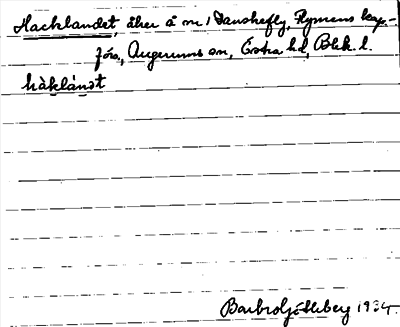 Hacklandet, åker å m 1 Danskefly, Rymens kap.-
förs., Augerums sn, Östra hd, Blek. l.
hàklánдt
Barbro Götleberg 1934.